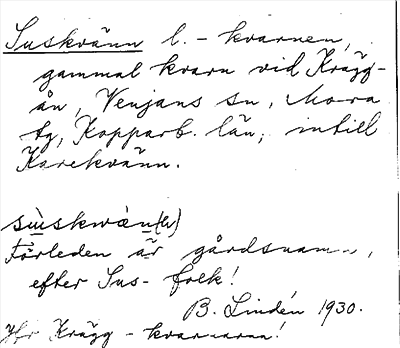 Suskvänn l. - kvarnen,
gammal kvarn vid Krägg-
ån, Venjans sn, Mora
tg, Kopparb. län, intill
Karekvänn.
sùskwàn(h)
Förleden är gårdsnamn,
efter Sus- folk!
B. Lindén 1930.
Jfr Krägg - kvarnarna!